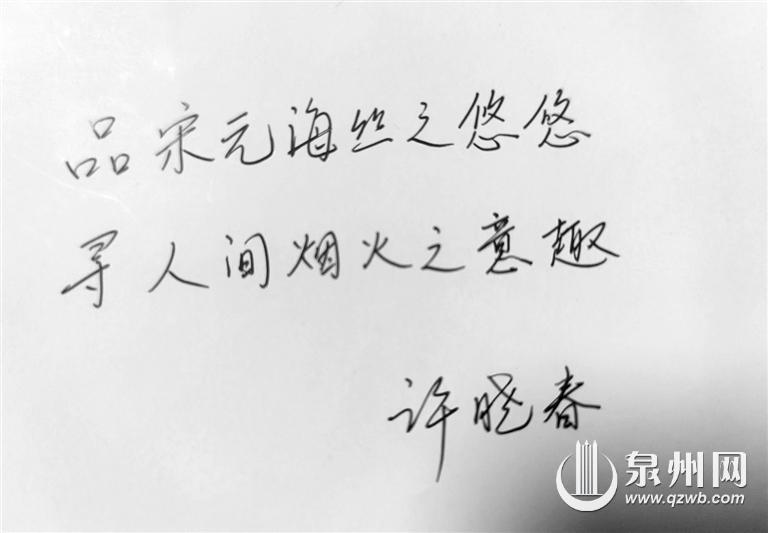 品宋元海丝之悠悠
寻人间烟火之意趣
许晓春
泉州网
www.qzwb.com